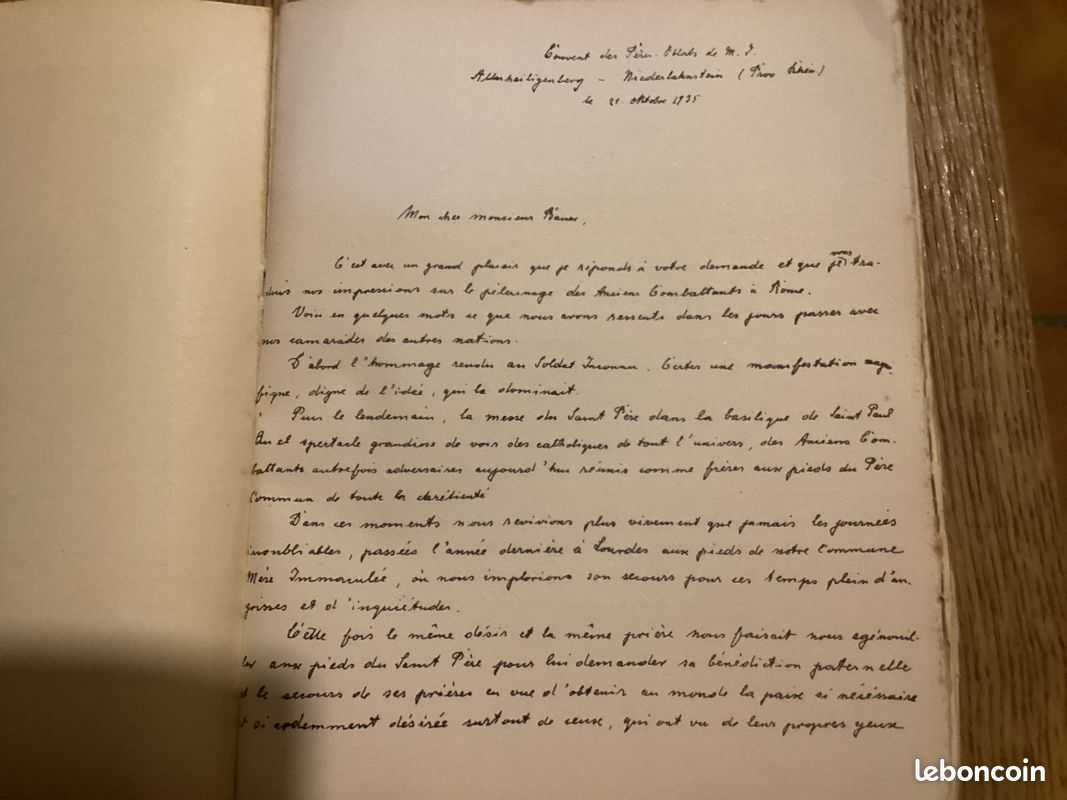 Couvent des Pères Oblats de M. J.
Allerheiligenberg – Niederlahnstein (Prov Rhein)
le 21 Oktobre 1935
Mon cher monsieur
C'est avec un grand plaisir que je réponds à votre demande et que je vous tra-
duis nos impressions sur le pèlerinage des Anciens Combattants à Rome.
Voici en quelques mots ce que nous avons ressenti dans les jours passés avec
nos camarades des autres nations.
D'abord l'hommage rendu au Soldat Inconnu. Certes une manifestation magni-
fique, digne de l'idée, qui la dominait.
Puis le lendemain, la messe du Saint Père dans la basilique de Saint Paul
Quel spectacle grandiose de voir des catholiques de tout l'univers, des Anciens Com-
battants autrefois adversaires aujourd'hui réunis comme frères aux pieds du Père
Commun de toute la chrétienté
Dans ces moments nous revivions plus vivement que jamais les journées
inoubliables, passées l'année dernière à Lourdes aux pieds de notre Commune
Mère Immaculée, où nous implorions son secours pour ces temps plein d'an-
goisses et d'inquiétudes.
Cette fois le même désir et la même prière nous faisait nous agénouil-
ler aux pieds du Saint Père pour lui demander sa bénédiction paternelle
et le secours de ses prières en vue d'obtenir au monde la paix si nécéssaire
et si ardemment désirée surtout de ceux, qui ont vu de leurs propres yeux
leboncoin